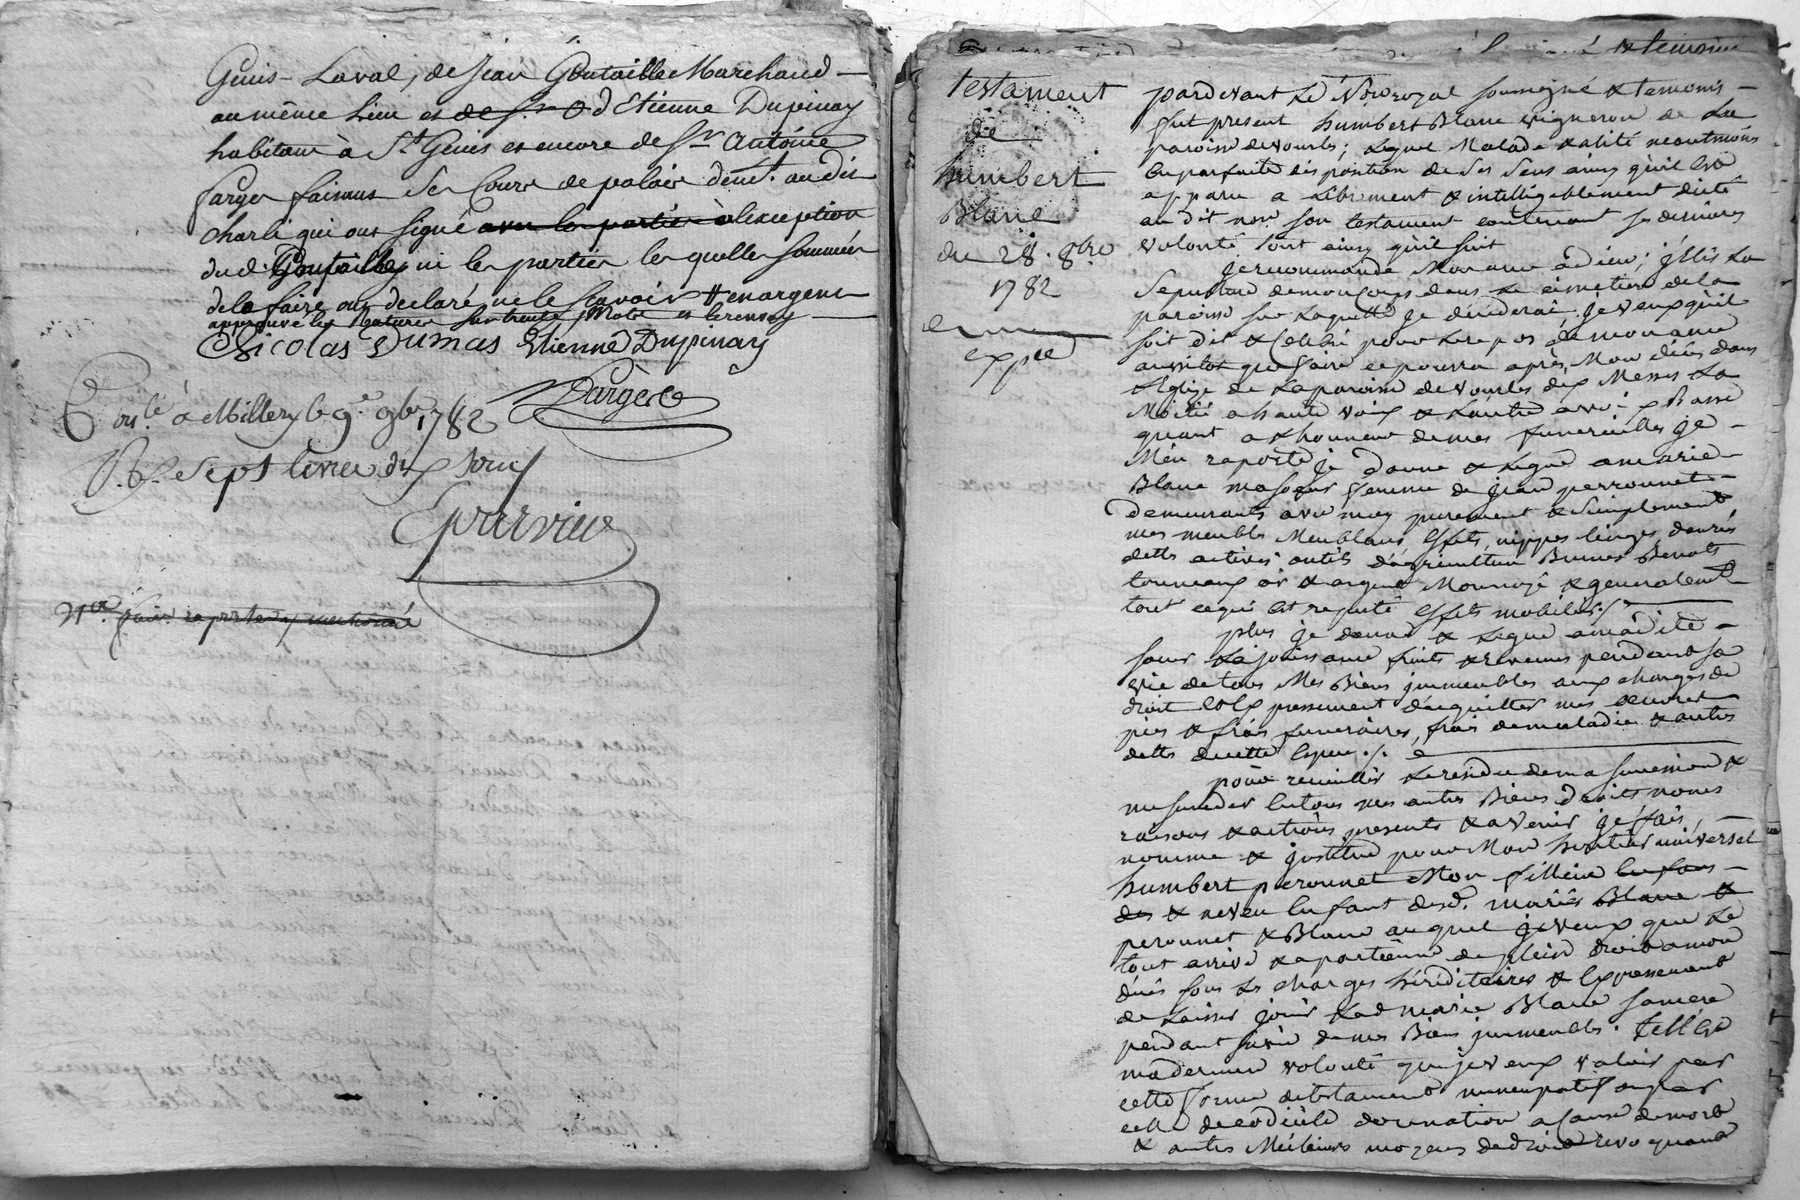 Genis-Laval, de Jean Goutaille Marchand
au même lieu et de Sr d Etienne Dupinay
habitans à St Genis et encore de Sr Antoine
Farge
charli qui ont signé avec les parties à l'exception
dud. Goutailley ni les parties lesquelles sommées
de le faire ont declaré ne le scavoir en argent
Nicolas Dumas Etienne Dupinay
Fargere
Conlé à Millery le 9e 9bre 1782
R. sept livres dix sous
testament
de
humbert
Blanc
du 28. 8bre
1782
expée
pardevant Le Nore royal soussigné & temoins
fut present humbert Blanc vigneron de La
paroisse de vourles; Lequel Malade & alité neantmoins
En parfaite disposition de Ses Sens ainsy qu'il Est
apparu a Librement & intelligiblement dicté
au dit nore son testament contenant ses dernieres
volonté sont ainsy qu'il suit
je recommande Mon ame à dieu; j'Ellis La
Sepulture de mon corps dans Le cimetiere de la
paroisse sur Laquelle je décederai. je veux qu'il
soit dit & Celebré pour Le repos de mon ame
aussitot que faire ce pourra après Mon décès dans
L'église de La paroisse de vourles dix Messes La
Moitié a haute voix & L'autre a voix Basse
quant a L'honneur de mes funerailles je
M'en raporte je donne & Legue a marie
Blanc ma soeur femme de jean perronnet
demeurants avec moy purement & Simplement
mes meubles Meublans Effets nippes linges denrés
dette actives outils d'agriculture Bennes Benots
tonneaux or & argent Monnoyé & generalemt
tout ce qui Est reputé effets mobiliers
plus je donne & Legue a madite
soeur La jouissance fruits & revenus pendant sa
vie de tous Mes Biens immeubles aux charges de
droit & Expressement d'acquitter mes oeuvres
pies & frais funeraires, frais de maladie & autres
dette de cette Espece
pour recueillir Le residu de ma succession &
me succeder En tous mes autres Biens droits noms
raisons & actions presents & a venir je fais,
nomme & institue pour Mon heritier universel
humbert peronnet Mon filleul
des & neveu Enfant desd. mariés Blanc &
peronnet & Blanc auquel je veux que Le
tout arrive & apartienne de plein droit a mon
décès sous Les charges héréditaires & Expressement
de Laisser jouir Lad marie Blanc sa mere
pendant sa vie de mes Biens immeubles. tell Est
ma derniere volonté que je veux valoir par
cette forme de testament nuncupatif ou par
celle de codicile donnation a Cause de mort
& autres Meilleurs moyens de droit revoquant